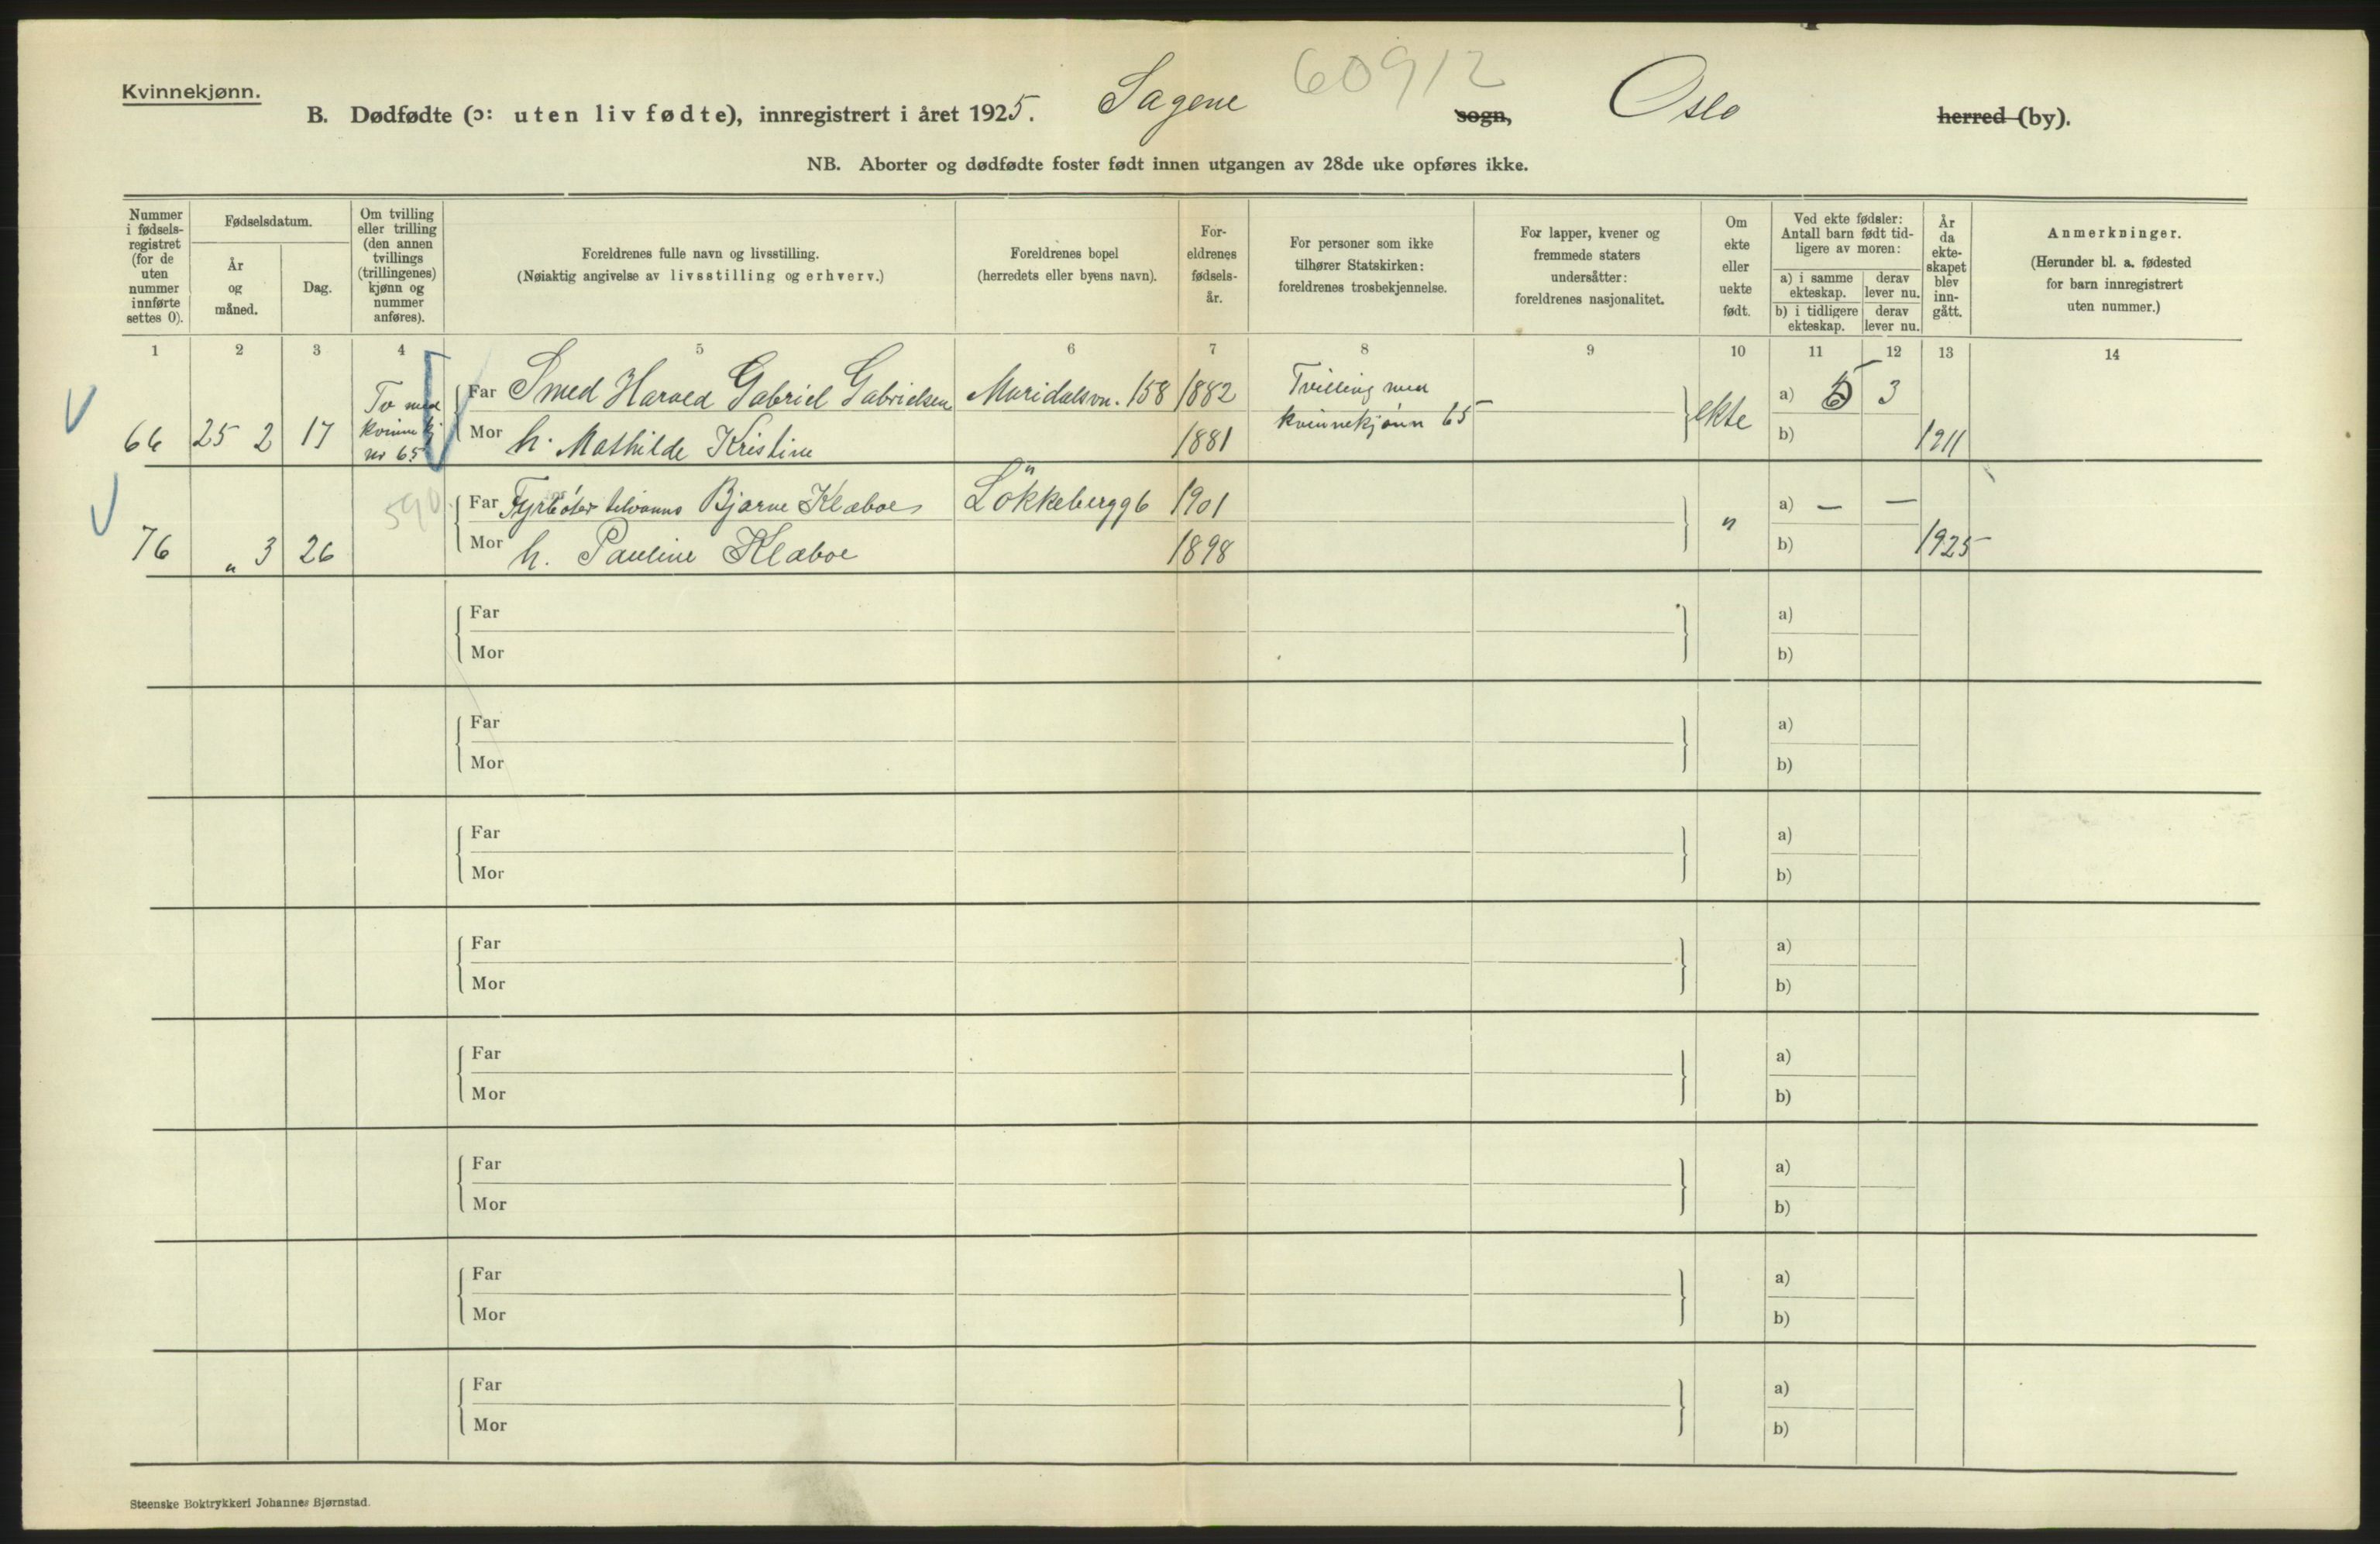 Kvinnekjønn.
60912
B. Dødfødte (ɔ: uten liv fødte), innregistrert i året 1925. Sagene sogn, Oslo herred (by).
NB. Aborter og dødfødte foster født innen utgangen av 28de uke opføres ikke.
Nummer
i fødsels-
registret
(for de
uten
nummer
innførte
settes 0).
Fødselsdatum.
År
og
måned.
Dag.
Om tvilling
eller trilling
(den annen
tvillings
(trillingenes)
kjønn og
nummer
anføres).
Foreldrenes fulle navn og livsstilling.
(Nøiaktig angivelse av livsstilling og erhverv.)
Foreldrenes bopel
(herredets eller byens navn).
For-
eldrenes
fødsels-
år.
For personer som ikke
tilhører Statskirken:
foreldrenes trosbekjennelse.
For lapper, kvener og
fremmede staters
undersåtter:
foreldrenes nasjonalitet.
Om
ekte
eller
uekte
født.
Ved ekte fødsler:
Antall barn født tid-
ligere av moren:
a) i samme
ekteskap.
derav
lever nu.
b) i tidligere
ekteskap.
derav
lever nu.
År
da
ekte-
skapet
blev
inn-
gått.
Anmerkninger.
(Herunder bl. a. fødested
for barn innregistrert
uten nummer.)
1 2 3 4 5 6 7 8 9 10 11 12 13 14
66 25 2 17
Tv med
kvinnekj
nr 65
Far Smed Harald Gabriel Gabrielsen Maridalsvn. 158 1882
Tvilling med
kvinnekjønn 65
ekte a) 5 3
Mor h. Mathilde Kristine 1881 b) 1911
590
Far Fyrbøter Bjarne Klæboe Lökkebergg6 1901 " a) — —
76 " 3 26
Mor h. Pauline Klæboe 1898 b) 1925
Far a)
Mor b)
Far a)
Mor b)
Far a)
Mor b)
Far a)
Mor b)
Far a)
Mor b)
Far a)
Mor b)
Far a)
Mor b)
Far a)
Mor b)
Steenske Boktrykkeri Johannes Bjørnstad.